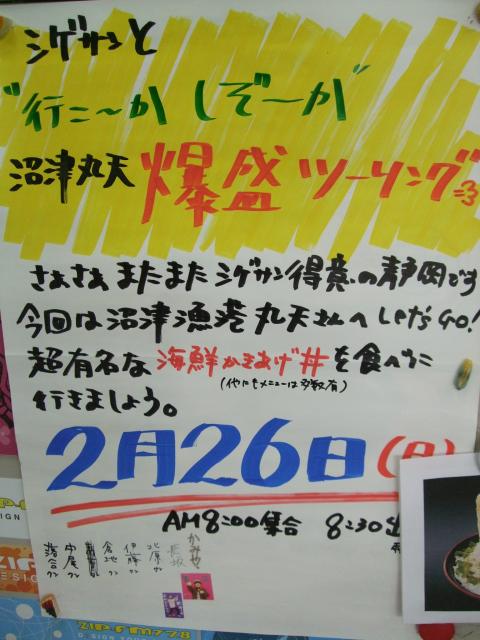 シゲサンと
"行こ〜か しぞ〜か"
沼津丸天 爆盛 ツーリング
さぁさぁ またまた シゲサン得意の静岡です
今回は沼津漁港 丸天さんへ Let's Go!
超有名な 海鮮かきあげ丼を食べに
(他にもメニューは多数有)
行きましょう。
2月26日(日)
AM8:00集合 8:30出
かみや
長坂
北原サン
伊藤サン
倉地サン
中尾サン
落合サン
ZIP FM 77.8